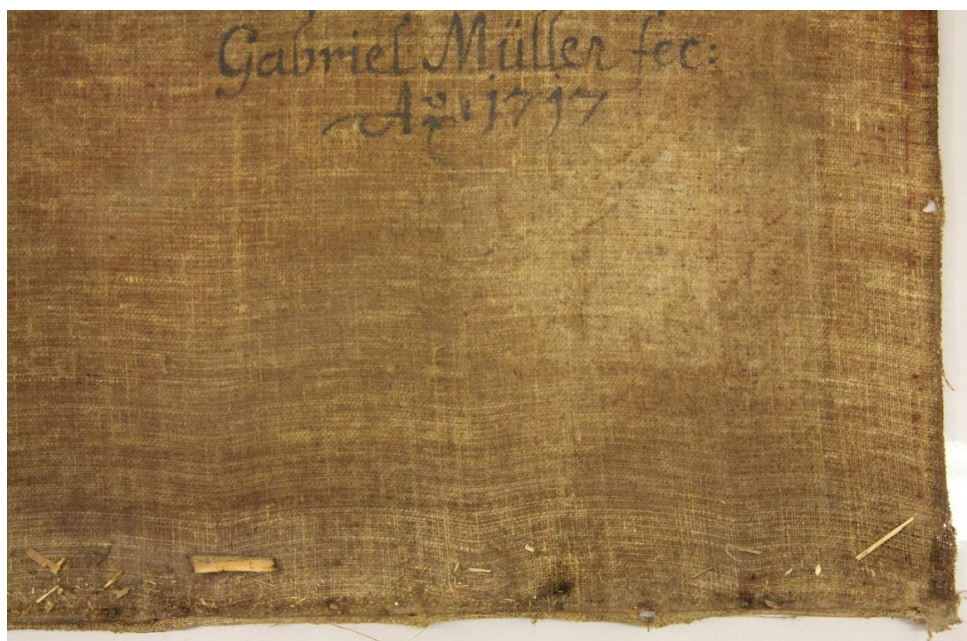 Gabriel Müller fec:
Aº: 1717